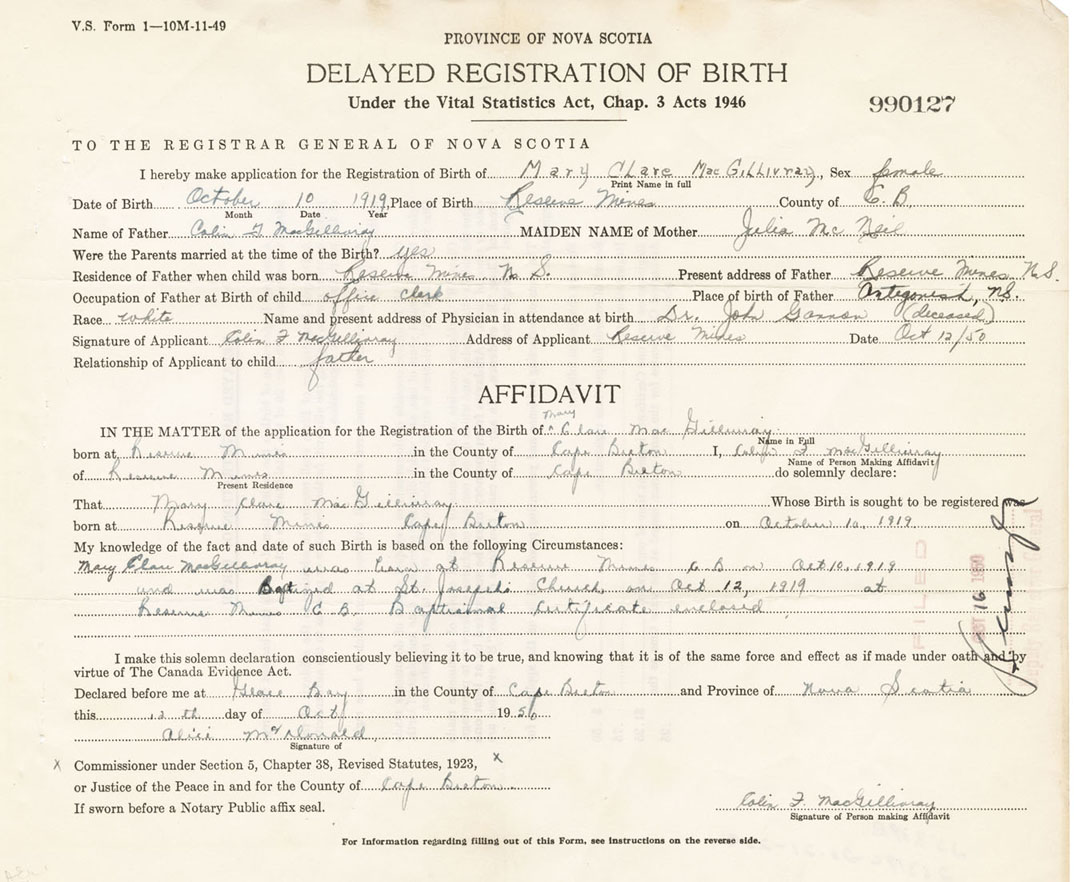 V.S. Form 1—10M-11-49
PROVINCE OF NOVA SCOTIA
DELAYED REGISTRATION OF BIRTH
Under the Vital Statistics Act, Chap. 3 Acts 1946
990127
TO THE REGISTRAR GENERAL OF NOVA SCOTIA
I hereby make application for the Registration of Birth of Mary Clare MacGillivray, Sex female
Print Name in full
Date of Birth October 10 1919, Place of Birth Reserve Mines County of C.B.
Month Date Year
Name of Father Colin F MacGillivray MAIDEN NAME of Mother Julia Mc Neil
Were the Parents married at the time of the Birth? yes
Residence of Father when child was born Reserve Mines N.S. Present address of Father Reserve Mines N.S.
Occupation of Father at Birth of child office clerk Place of birth of Father Antigonish, NS.
Race white Name and present address of Physician in attendance at birth Dr. John Gannon (deceased)
Signature of Applicant Colin F MacGillivray Address of Applicant Reserve Mines Date Oct 12/50
Relationship of Applicant to child father
AFFIDAVIT
Mary
IN THE MATTER of the application for the Registration of the Birth of Clare MacGillivray
Name in Full
born at Reserve Mines in the County of Cape Breton I, Colin F MacGillivray
Name of Person Making Affidavit
of Reserve Mines in the County of Cape Breton do solemnly declare:
Present Residence
That Mary Clare MacGillivray Whose Birth is sought to be registered was
born at Reserve Mines Cape Breton on October 10, 1919
My knowledge of the fact and date of such Birth is based on the following Circumstances:
Mary Clare MacGillivray was born at Reserve Mines C B on Oct 10, 1919
and was Baptized at St. Joseph's Church, on Oct 12, 1919 at
Reserve Mines C.B. Baptismal Certificate enclosed
FILED
OCT 16 1950
I make this solemn declaration conscientiously believing it to be true, and knowing that it is of the same force and effect as if made under oath and by
virtue of The Canada Evidence Act.
Declared before me at Glace Bay in the County of Cape Breton and Province of Nova Scotia
this 12th day of Oct 1950
Alice McDonald
Signature of
x Commissioner under Section 5, Chapter 38, Revised Statutes, 1923, x
or Justice of the Peace in and for the County of Cape Breton
If sworn before a Notary Public affix seal.
Colin F. MacGillivray
Signature of Person making Affidavit
For Information regarding filling out of this Form, see instructions on the reverse side.